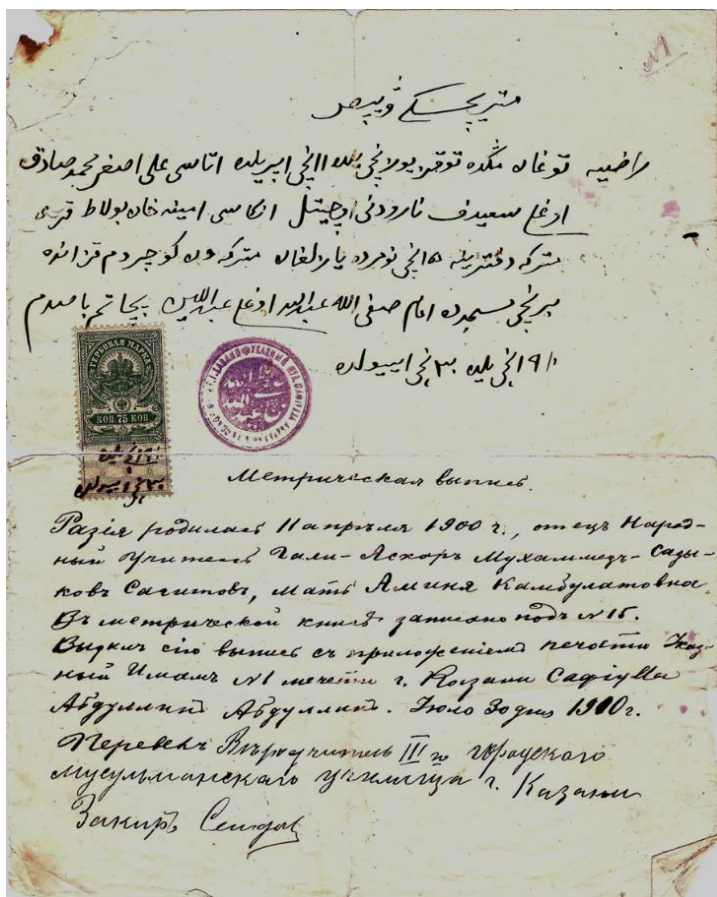 №1
متريچسكي وپيس
راضيه توغان مڭده توقز يولانچى يلده ١١نچى اپريلده اتاسى على اصغر محمد صادق
اوغلى سعيدف نارودنى اوچيتل انكاسى امينه خان بولاط قزى
متركه دفترينه ١٥نچى نومرده يازلغان متركه دن كوچردم قزانده
برنچى مسجدده امام صفى الله عبدالله اوغلى باصدم
١٩١ نچى يلده ٣٠نچى اييولده
ГЕРБОВАЯ МАРКА
КОП 75 КОП
٣٠نچى اييولده
Метрическая выпись.
Разія родилась 11 апрѣля 1900 г., отецъ Народ-
ный Учитель Гали-Аскаръ Мухаммедъ-Сады-
ковъ Сагитовъ, мать Аминя Камбулатовна.
Въ метрической книгѣ записано подъ №15.
Выдалъ сію выпись съ приложеніемъ печати Указ-
ный Имамъ №1 мечети г. Казани Сафіулла
Абдуллинъ Абдуллинъ. Іюло 30 дня 1910 г.
Перевелъ Вѣроучитель III го городского
мусульманскаго училища г. Казани
Закиръ Сеидов